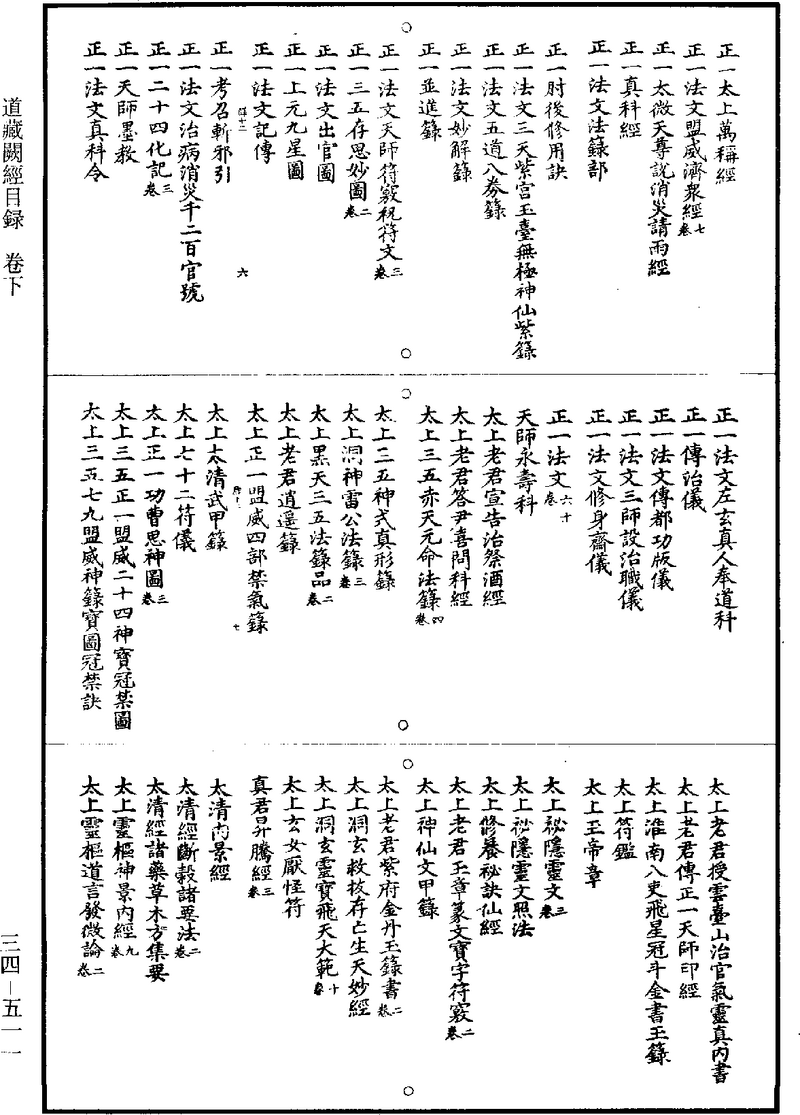 道藏闕經目録　卷下
三四—五一一
正一太上萬稱經
正一法文盟威濟衆經七卷
正一太微天尊説消災請雨經
正一真科經
正一法文法籙部
正一肘後修用訣
正一法文三天紫宫玉臺無極神仙紫籙
正一法文五道八券籙
正一法文妙解籙
正一並進籙
正一法文天師符竅祝符文三卷
正一三五存思妙圖二卷
正一法文出官圖
正一上元九星圖
正一法文記傳
正一考召斬邪引
六
正一法文治病消災千二百官號
正一二十四化記三卷
正一天師墨教
正一法文真科令
正一法文左玄真人奉道科
正一傳治儀
正一法文傳都功版儀
正一法文三師設治職儀
正一法文修身齋儀
正一法文六十卷
天師永壽科
太上老君宣告治祭酒經
太上老君答尹喜問科經
太上三五赤天元命法籙四卷
太上二五神式真形籙
太上洞神雷公法籙三卷
太上黑天三五法籙品二卷
太上老君逍遥籙
太上正一盟威四部禁氣籙
七
太上太清武甲籙
太上七十二符儀
太上正一功曹思神圖三卷
太上三五正一盟威二十四神寶冠禁圖
太上三五七九盟威神籙寶圖冠禁訣
太上老君授雲臺山治官氣靈真内書
太上老君傳正一天師印經
太上淮南八史飛星冠斗金書玉籙
太上符鑑
太上玉帝章
太上祕隱靈文三卷
太上祕隱靈文照法
太上修養祕訣仙經
太上老君玉章篆文寶字符竅二卷
太上神仙文甲籙
太上老君紫府金丹玉籙書二卷
太上洞玄救拔存亡生天妙經
太上洞玄靈寶飛天大範十卷
太上玄女厭怪符
真君昇騰經三卷
太清内景經
太清經斷穀諸要法二卷
太清經諸藥草木方集要
太上靈樞神景内經九卷
太上靈樞道言發微論二卷